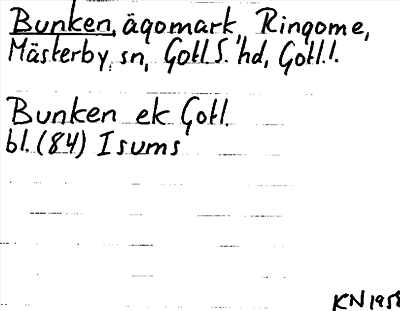 Bunken, äqomark, Ringome,
Mästerby, sn, Gotl S. hd, Gotl.l.
Bunken ek Gotl.
bl. (84) Isums
KN 1958